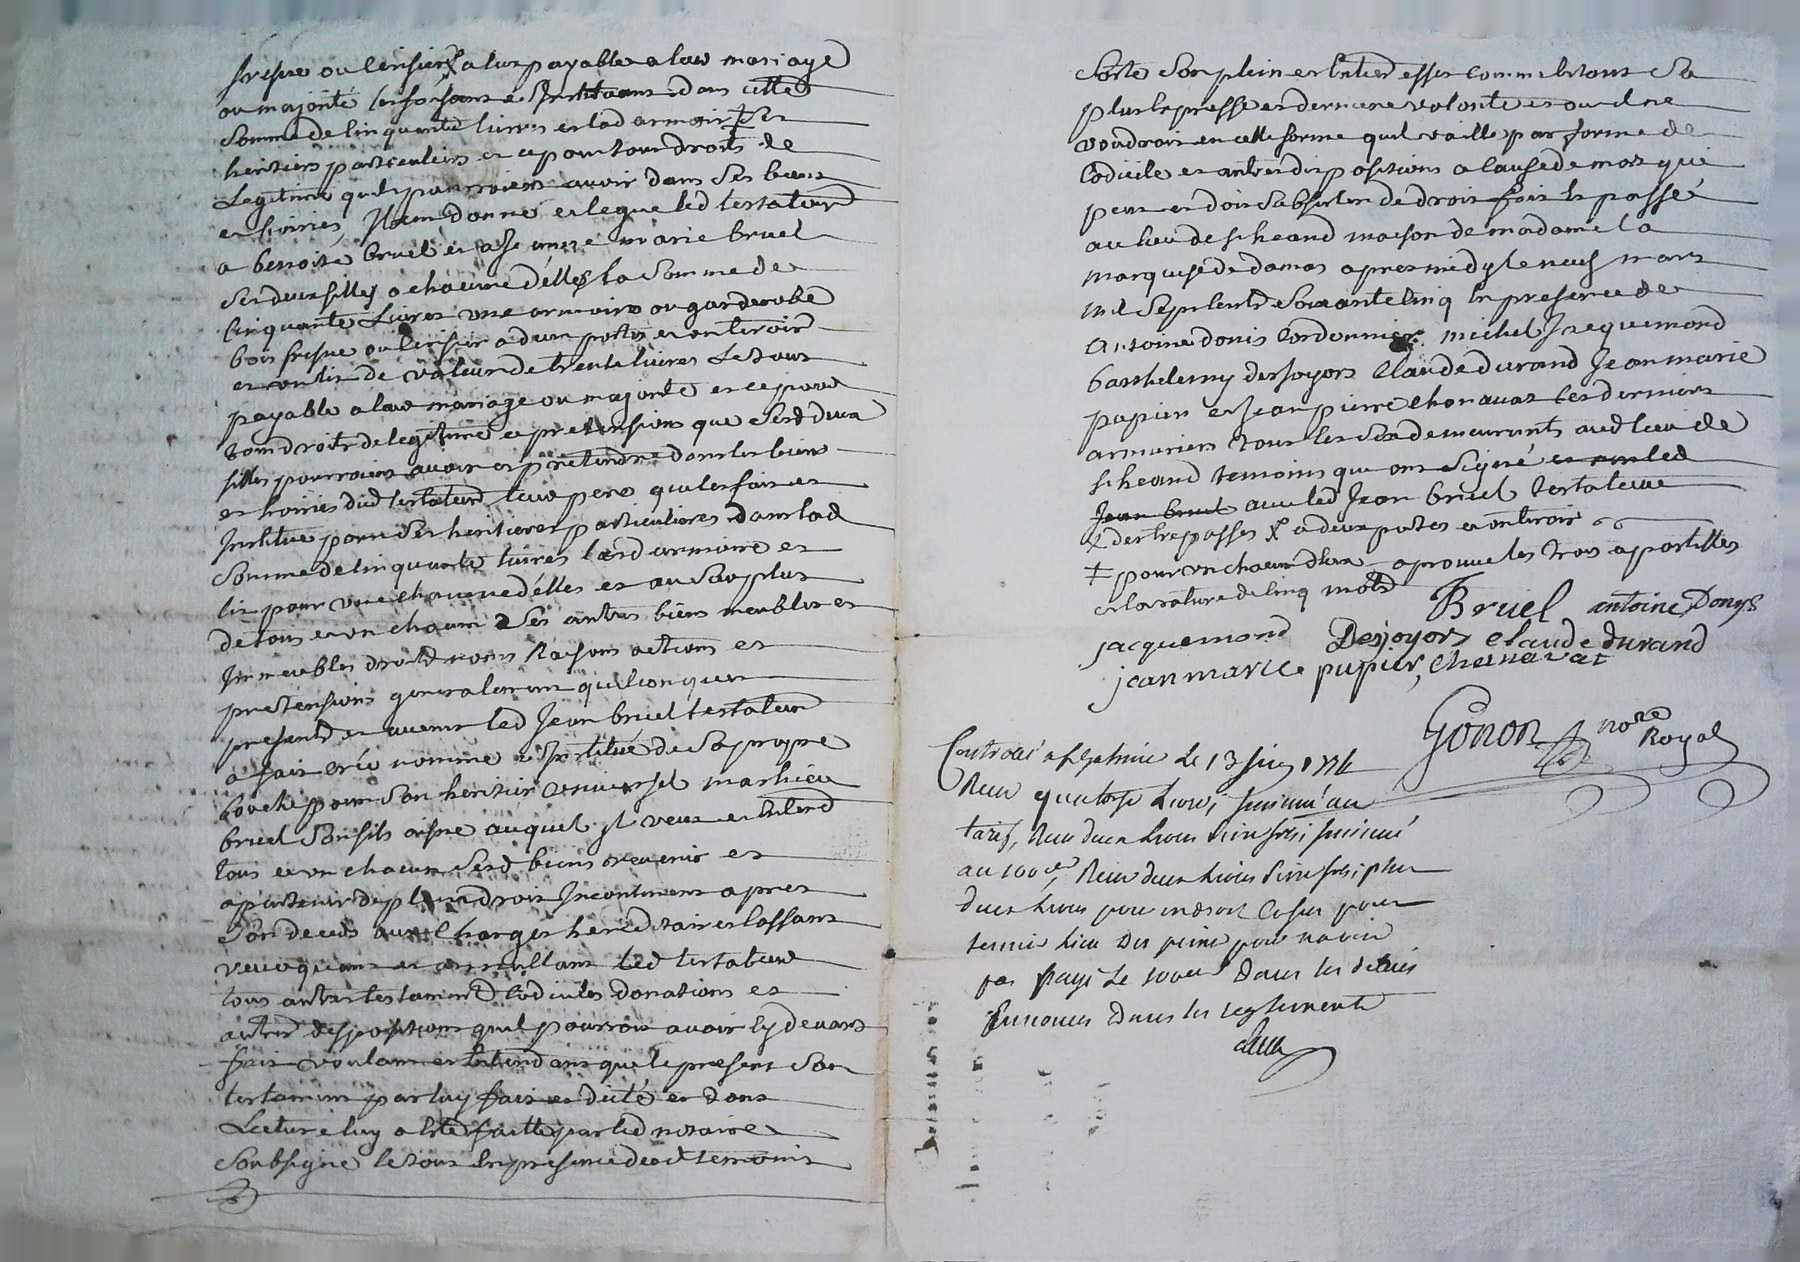 fresne ou cerisier X a lux payable a leur mariage
ou majorité les faisant et Instituant dans cette
somme de cinquante livres et lad armoire ‡ ses
heritiers particuliers et ce pour tous droits de
Legitime quils pourroient avoir dans ses biens
et hoiries, Item donne et legue led testateur
a benoite bruel et a Jeanne marie bruel
ses deux filles a chacune d'elles la somme de
Cinquante Livres une armoire ou garderobe
bois fresne ou cerisier a deux portes et un tiroir
et un lit de valeur de trente livres Le tout
payable a leur mariage ou majorité et ce pour
tous droits de legitime et pretensions que sesd deux
filles pourroient avoir et pretendre dans les biens
et hoiries dud testateur leur pere qui les fait et
Institue pour ses heritieres particulieres dans lad
somme de cinquante livres lesd armoire et
lit pour une chacune d'elles et au surplus
de tous et un chacun ses autres biens meubles et
Immeubles droits noms Raisons actions et
pretensions generalement quelconques
presents et avenir led Jean bruel testateur
a fait créé nommé et Institué de sa propre
bouche pour son heritier universel mathieu
bruel son fils aisne auquel il veut et entend
tous et un chacun sesd biens revenir et
apartenir de plein droit Incontinent apres
son deces aux Charges hereditaires Cassant
revoquant et annullant led testateur
tous autres testaments Codiciles donations et
autres dispositions quil pourroit avoir cy devant
fait voulant et entendant que le present son
testament par luy fait et dicté et dont
Lecture luy a été faitte par led notaire
soubsigné le tout en presence desd temoins
sorte son plein et entier effet comme etant sa
plus expresse et derniere volonté et ou il ne
voudroit en cette forme quil vaille par forme de
Codicile et autres dispositions a cause de mort qui
peut et doit subsister de droit fait et passé
au lieu de st heand maison de madame la
marquise de damas apres midy le neuf mars
mil sept cents soixante cinq en presence de
antoine donis Cordonnier michel Jacquemond
barthelemy desjoyors Claude durand Jean marie
papier et Jean pierre chonavat ces derniers
armuriers tous les six demeurants aud lieu de
st heand temoins qui ont signé et non led
Jean bruel avec led Jean bruel testateur
des trepasses X a deux portes et un tiroir
‡ pour un chacun d'eux aprouve les trois apostilles
et la rature de cinq mots
Bruel antoine Donys
jacquemond Desjoyors claude durand
jean marie pupier, chenavat
Gonon nore
Royal
Controllé a st Galmier Le 13 1774
Reçu quatorze Livres,
tarif, Reçu deux Livres
au 100e, Reçu deux Livres plus
deux Livres pour
pour n'avoir
pas payé Le 100e Dans les delais
Enoncés Dans les reglements